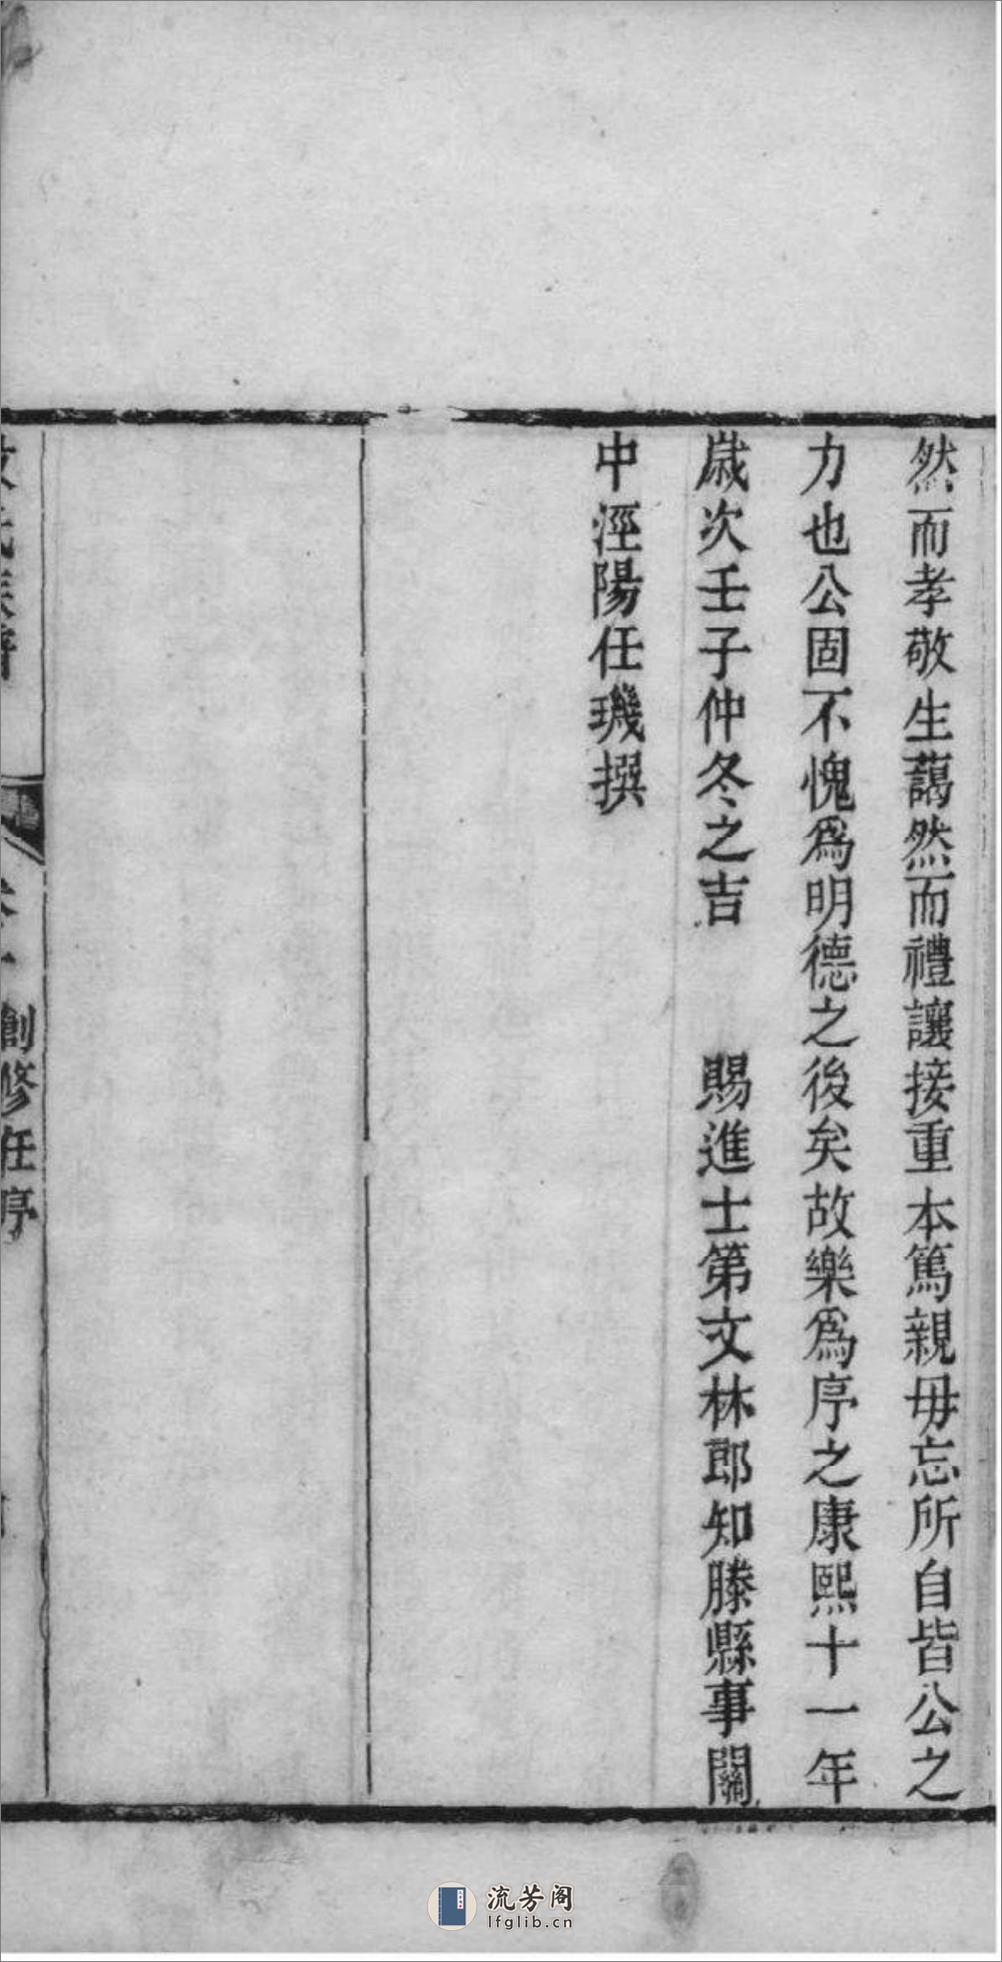 然而孝敬生藹然而禮讓接重本篤親毋忘所自皆公之
力也公固不愧爲明德之後矣故樂爲序之康熙十一年
歲次壬子仲冬之吉　　賜進士第文林郎知滕縣事關
中涇陽任璣撰
氏族譜
卷一　創修任序
流芳阁
lfglib.cn